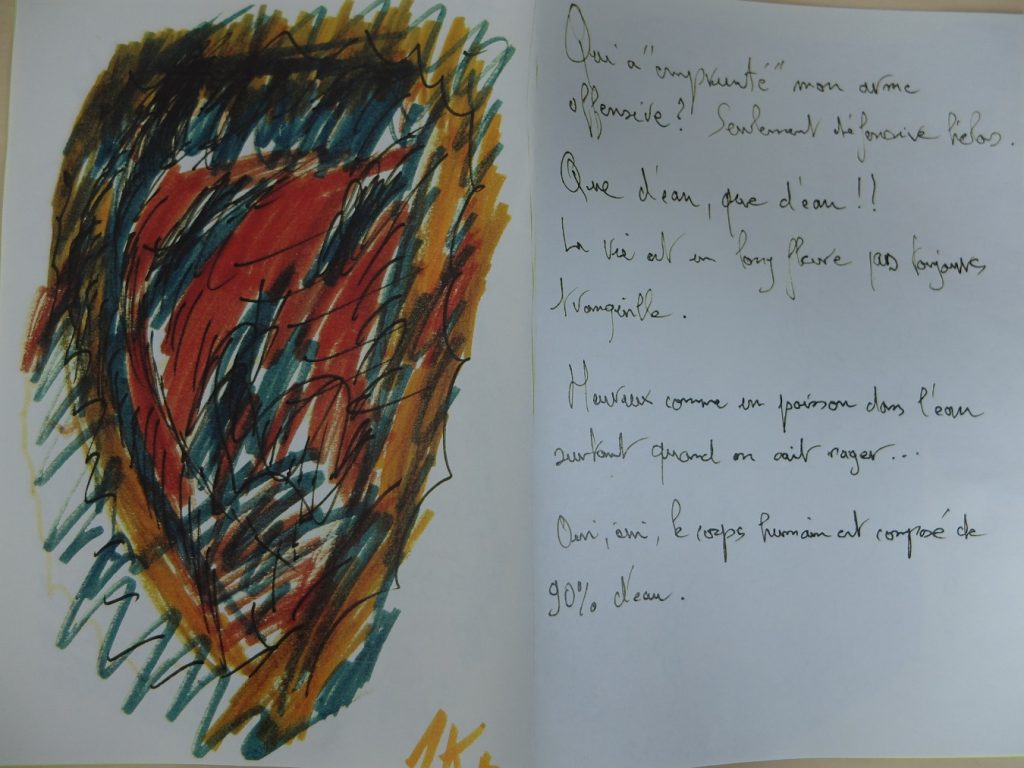 Qui a "emprunté" mon arme
offensive? Seulement défensive hélas.
Que d'eau, que d'eau!!
La vie est un long fleuve pas toujours
tranquille.
Heureux comme un poisson dans l'eau
surtout quand on sait nager...
Oui, oui, le corps humain est composé de
90% d'eau.